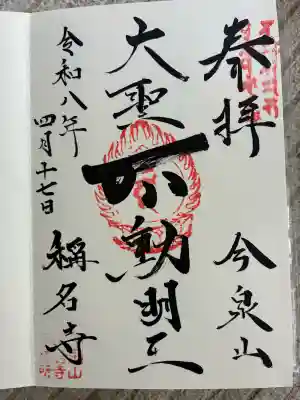 奉拝
今泉山
大聖不動明王
令和八年
四月十七日
稱名寺